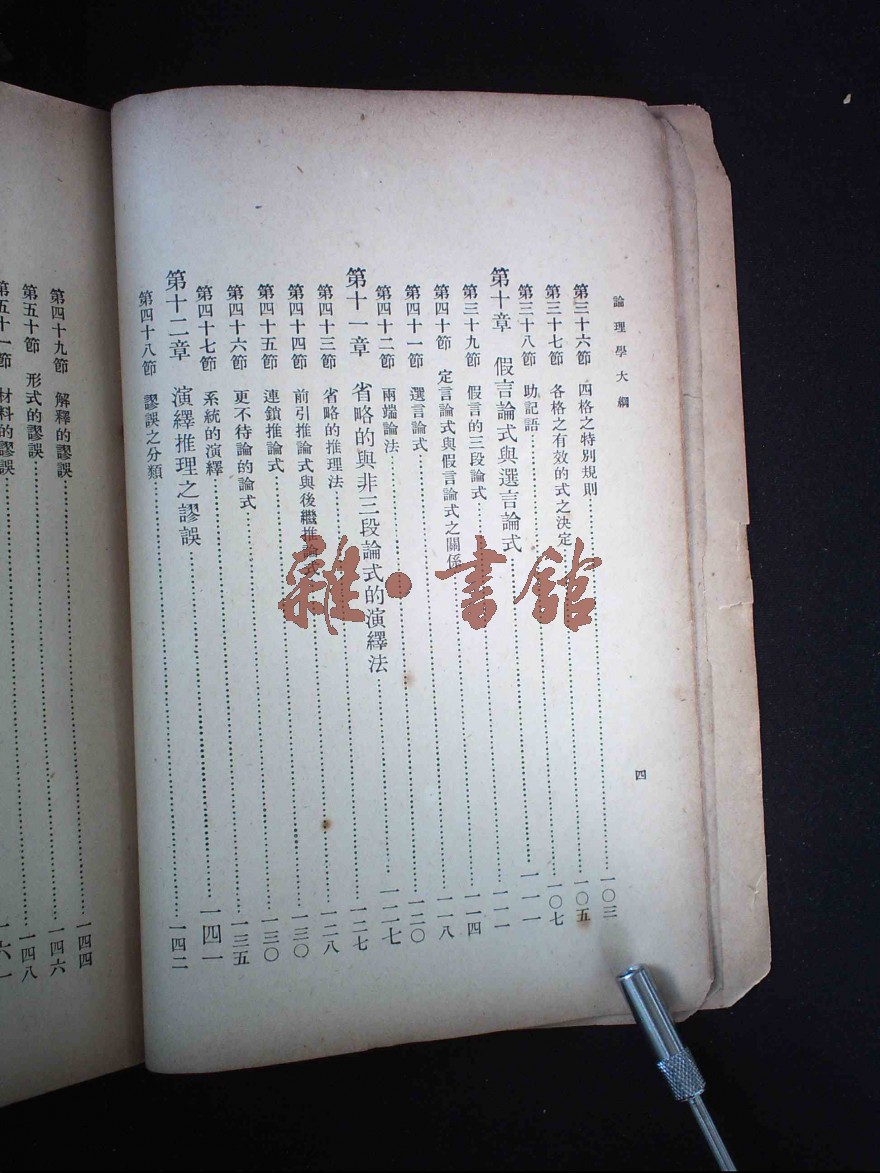 論理學大綱 四
第三十六節 四格之特別規則 一〇三
第三十七節 各格之有效的式之決定 一〇五
第三十八節 助記語 一〇七
第十章 假言論式與選言論式 一一一
第三十九節 假言的三段論式 一一一
第四十節 定言論式與假言論式之關係 一一四
第四十一節 選言論式 一一八
第四十二節 兩端論法 一二〇
第十一章 省略的與非三段論式的演繹法 一二七
第四十三節 省略的推理法 一二七
第四十四節 前引推論式與後繼推論式 一二八
第四十五節 連鎖推論式 一三〇
第四十六節 更不待論的論式 一三〇
第四十七節 系統的演繹 一三五
第十二章 演繹推理之謬誤 一四一
第四十八節 謬誤之分類 一四二
第四十九節 解釋的謬誤 一四四
第五十節 形式的謬誤 一四六
第五十一節 材料的謬誤 一四八
雜·書館